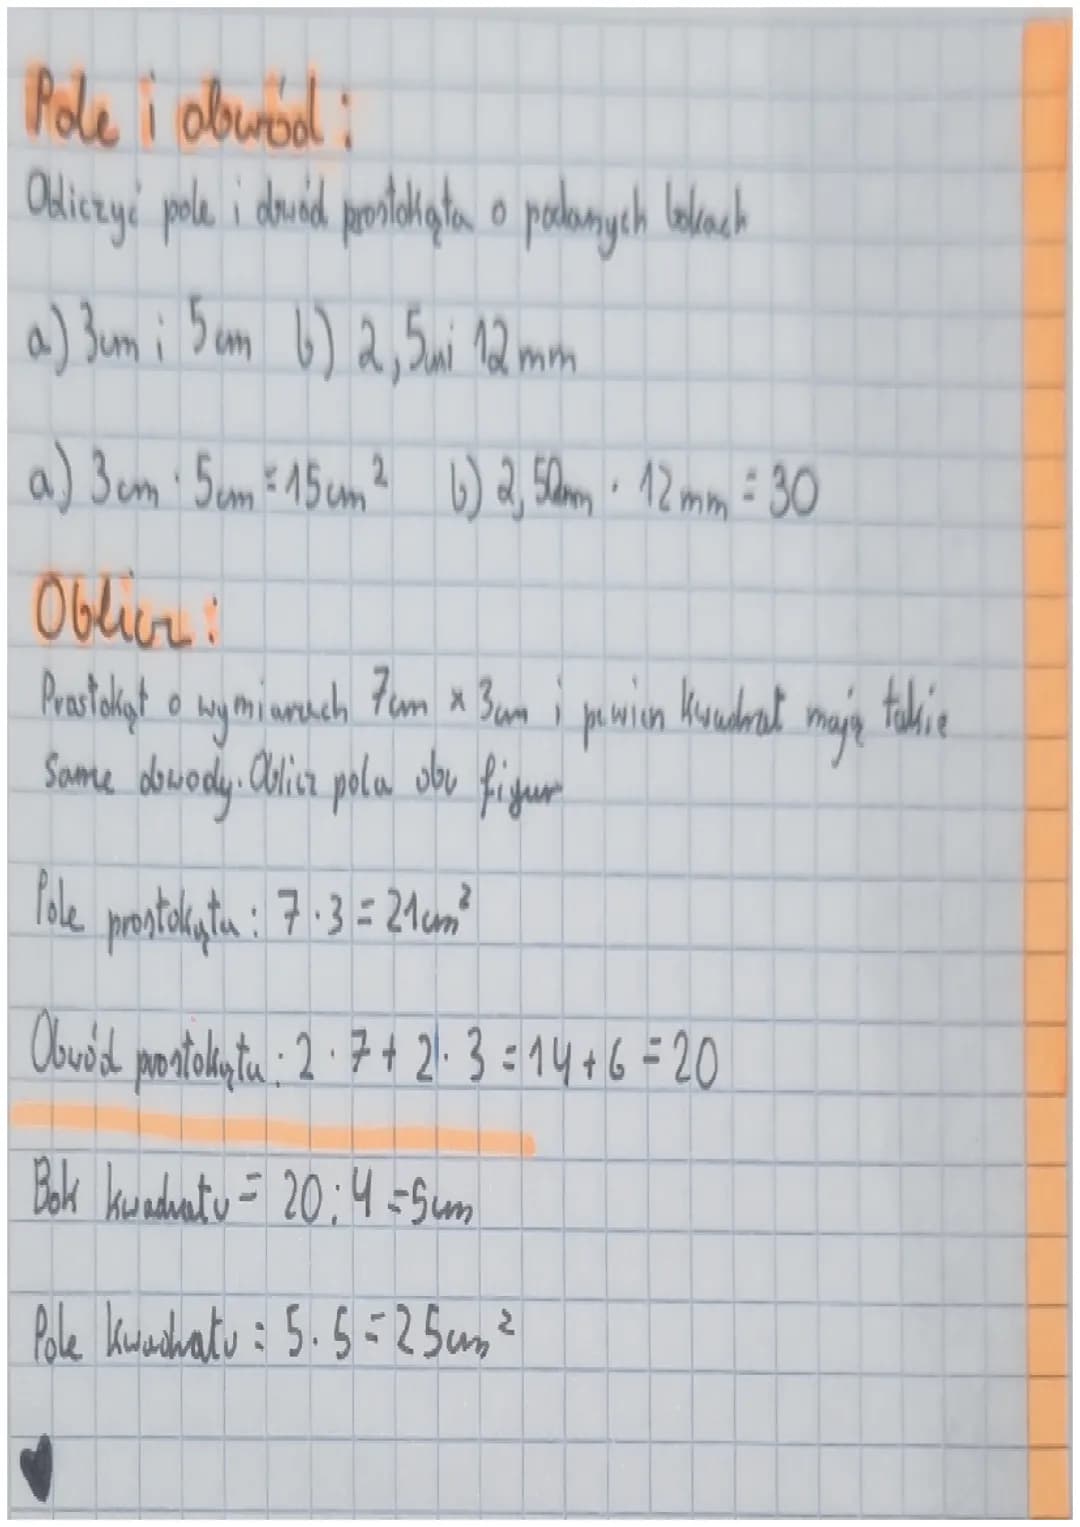 Pole i obwód:
Obliczyć pole i obwód prostokąta o podanych bokach
a) 3cm i 5cm b) 2,5 i 12mm
a) 3cm · 5cm = 15cm² b) 2,5 · 12mm = 30
Oblicz:
Prostokąt o wymiarach 7cm x 3cm i pewien kwadrat mają takie
same obwody. Oblicz pola obu figur
Pole prostokąta: 7·3 = 21cm²
Obwód prostokąta: 2·7+2·3=14+6=20
Bok kwadratu = 20:4=5cm
Pole kwadratu: 5·5=25cm²